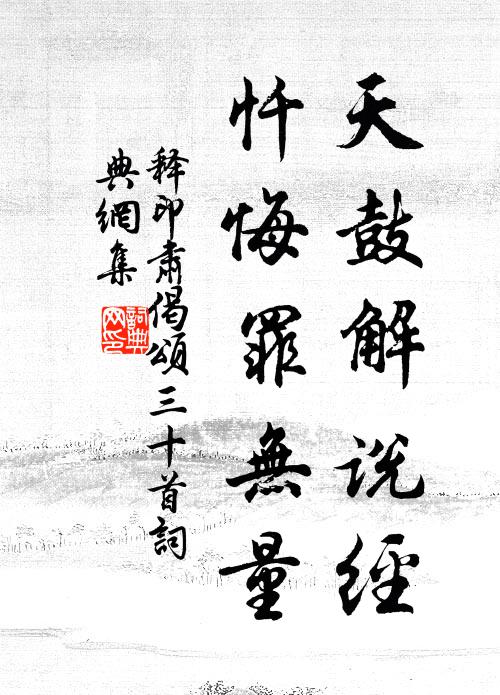 天鼓解说經
忏悔罪無量
释印肃偈頌三十首詞
典網集
詞典
网印